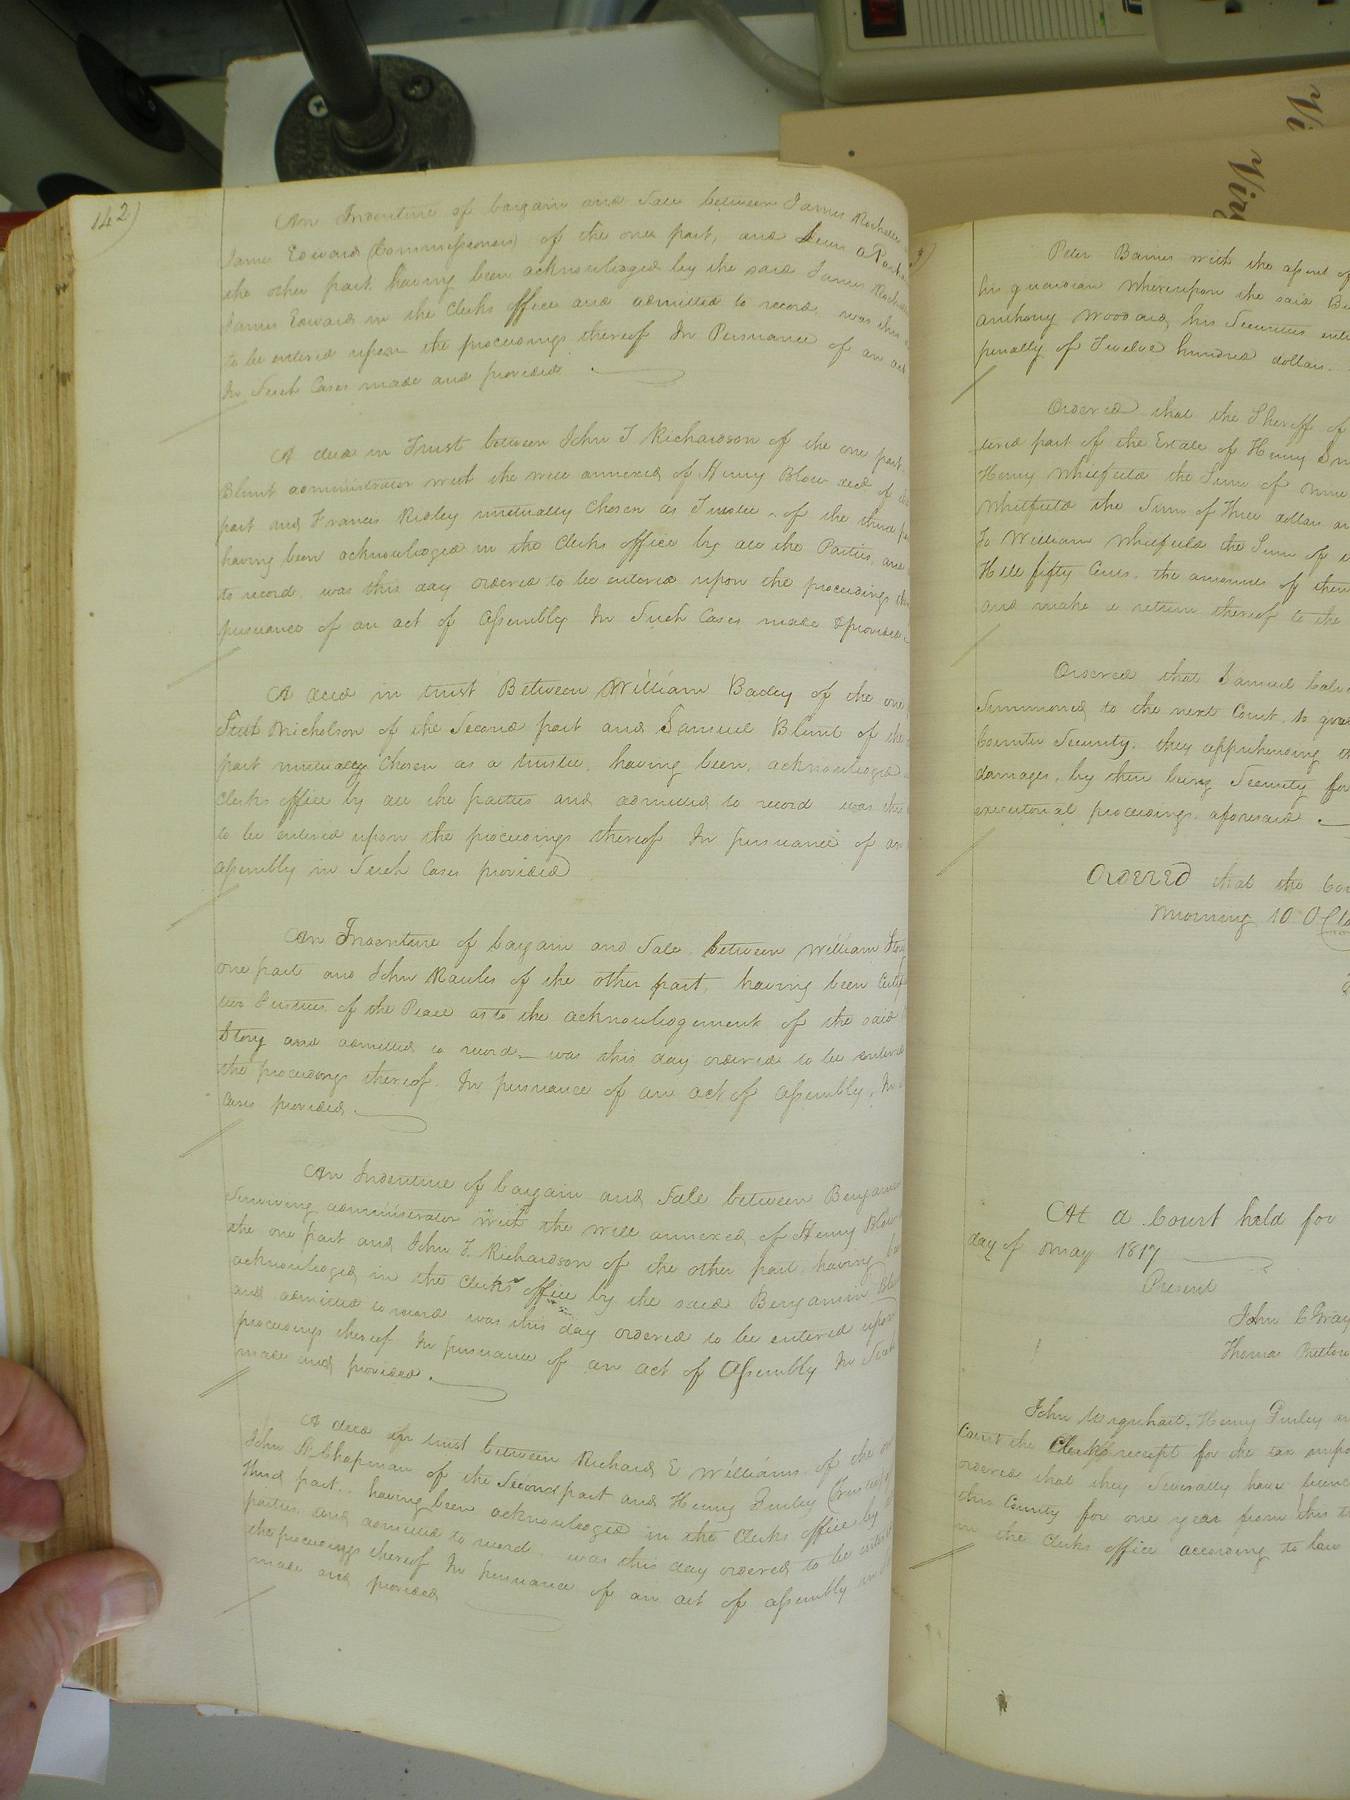 142)
An Indenture of bargain and Sale between James Rochelle
James Edwards (Commissioners) of the one part, and
the other part having been acknowledged by the said James
James Edwards in the Clerks office and admitted to record was this
to be entered upon the proceedings thereof In Persuance of an act
In Such Cases made and provided
A deed in Trust between John T Richardson of the one part
Blunt administrator with the will annexed of Henry Blow decd of
part and Francis Ridley mutually Chosen as Trustee of the third
having been acknowledged in the Clerks office by all the Parties, and
to record, was this day ordered to be entered upon the proceedings
pursuance of an act of Assembly In Such Cases made & provided
A deed in trust Between William Bailey of the one
Nicholson of the Second part and Samuel Blunt of the
part mutually Chosen as a trustee, having been, acknowledged
Clerks office by all the parties and admitted to record was this
to be entered upon the proceedings thereof In pursuance of an
assembly in Such Cases provided
An Indenture of bargain and Sale between William
one part and John Rawles of the other part, having been
Justices of the Peace as to the acknowledgement of the said
Story and admitted to record was this day ordered to be entered
the proceedings thereof. In pursuance of an act of assembly, In
Cases provided.
An Indenture of bargain and Sale between Benjamin
Surviving administrator with the will annexed of Henry Blow
the one part and John T. Richardson of the other part, having
acknowledged in the Clerks office by the said Benjamin
and admitted to record was this day ordered to be entered upon
proceedings thereof In pursuance of an act of Assembly In Such
made and provided.
A deed in trust between Richard E Williams of the
John A Chapman of the Second part and Henry Gurley (Trustee)
third part, having been acknowledged in the Clerks office by
parties and admitted to record was this day ordered to be
the proceedings thereof In pursuance of an act of assembly in
made and provided
Peter Barnes with the assent of
his guardian whereupon the said
anthony Woodard, his Securities
penalty of Twelve hundred dollars.
Ordered that the Sheriff of
part of the Estate of Henry
Henry Whitfield the Sum of nine
Whitfield the Sum of Three dollars
To William Whitfield the Sum of
Hill fifty Cents, the amounts of
and make a return thereof to the
Ordered that Samuel
Summoned to the next Court, to give
Counter Security, they apprehending
damages, by their being Security for
executorial proceedings, aforesaid.
Ordered that the
morning 10 O
At a Court held for
day of may 1817
Present
John C Gray
Thomas
John Urquhart, Henry Gurley
Court the Clerks receipt for the tax
ordered that they Severally have
this County for one year from this
in the Clerks office according to law